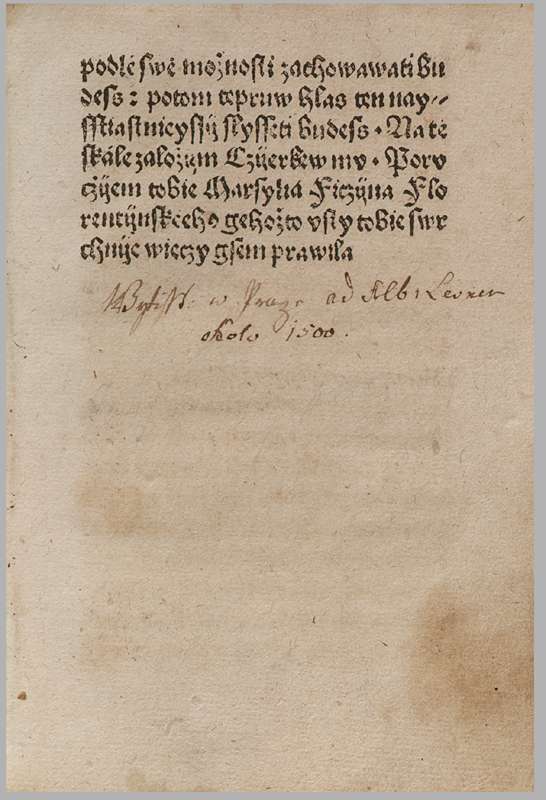 podlé swé možnosti zachowawati bu
dess : potom tepruw hlas ten nay//
sstiastnieyssij slysseti budess . Na té
skále založym Czyerkew mu . Poru
czijem tobie Marsylia Ficzyna Flo
rentijnskeeho gehožto vsty tobie swr
chnije wieczy gsem prawila
w Praze ad Alb
okolo 1500.